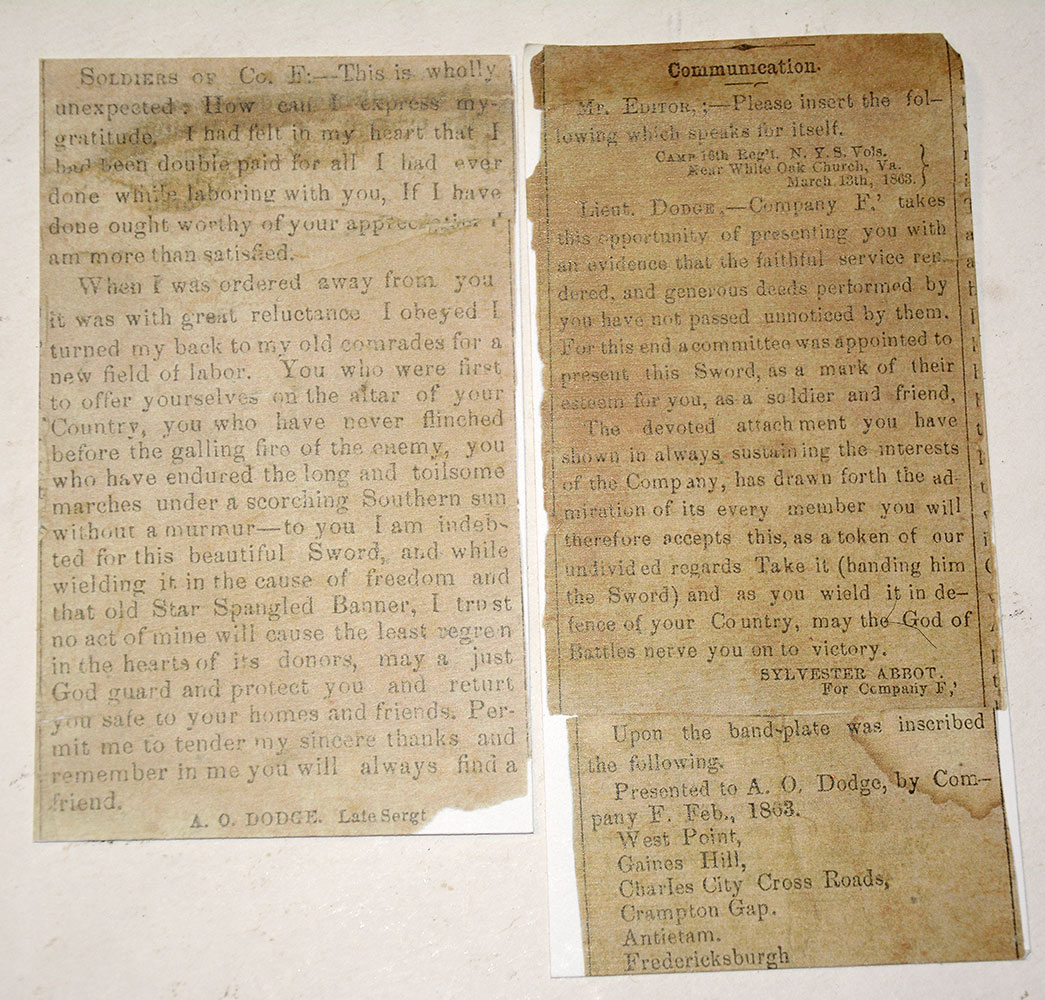 SOLDIERS OF Co. F:—This is wholly
unexpected: How can I express my
gratitude. I had felt in my heart that I
had been double paid for all I had ever
done while laboring with you, If I have
done ought worthy of your appreciation I
am more than satisfied.
When I was ordered away from you
it was with great reluctance I obeyed I
turned my back to my old comrades for a
new field of labor. You who were first
to offer yourselves on the altar of your
Country, you who have never flinched
before the galling fire of the enemy, you
who have endured the long and toilsome
marches under a scorching Southern sun
without a murmur—to you I am indeb-
ted for this beautiful Sword, and while
wielding it in the cause of freedom and
that old Star Spangled Banner, I trust
no act of mine will cause the least regren
in the hearts of its donors, may a just
God guard and protect you and returt
you safe to your homes and friends. Per-
mit me to tender my sincere thanks and
remember in me you will always find a
friend.
A. O. DODGE. Late Sergt
Communication.
MR. EDITOR,;—Please insert the fol-
lowing which speaks for itself.
CAMP 16th Reg't. N. Y. S. Vols.
Near White Oak Church, Va.
March 13th, 1863.
Lieut. DODGE,—Company F,' takes
this opportunity of presenting you with
an evidence that the faithful service ren-
dered, and generous deeds performed by
you have not passed unnoticed by them.
For this end a committee was appointed to
present this Sword, as a mark of their
esteem for you, as a soldier and friend,
The devoted attachment you have
shown in always sustaining the interests
of the Company, has drawn forth the ad-
miration of its every member you will
therefore accepts this, as a token of our
undivided regards Take it (handing him
the Sword) and as you wield it in de-
fence of your Country, may the God of
Battles nerve you on to victory.
SYLVESTER ABBOT.
For Company F,'
Upon the band-plate was inscribed
the following.
Presented to A. O. Dodge, by Com-
pany F. Feb., 1863.
West Point,
Gaines Hill,
Charles City Cross Roads,
Crampton Gap.
Antietam.
Fredericksburgh